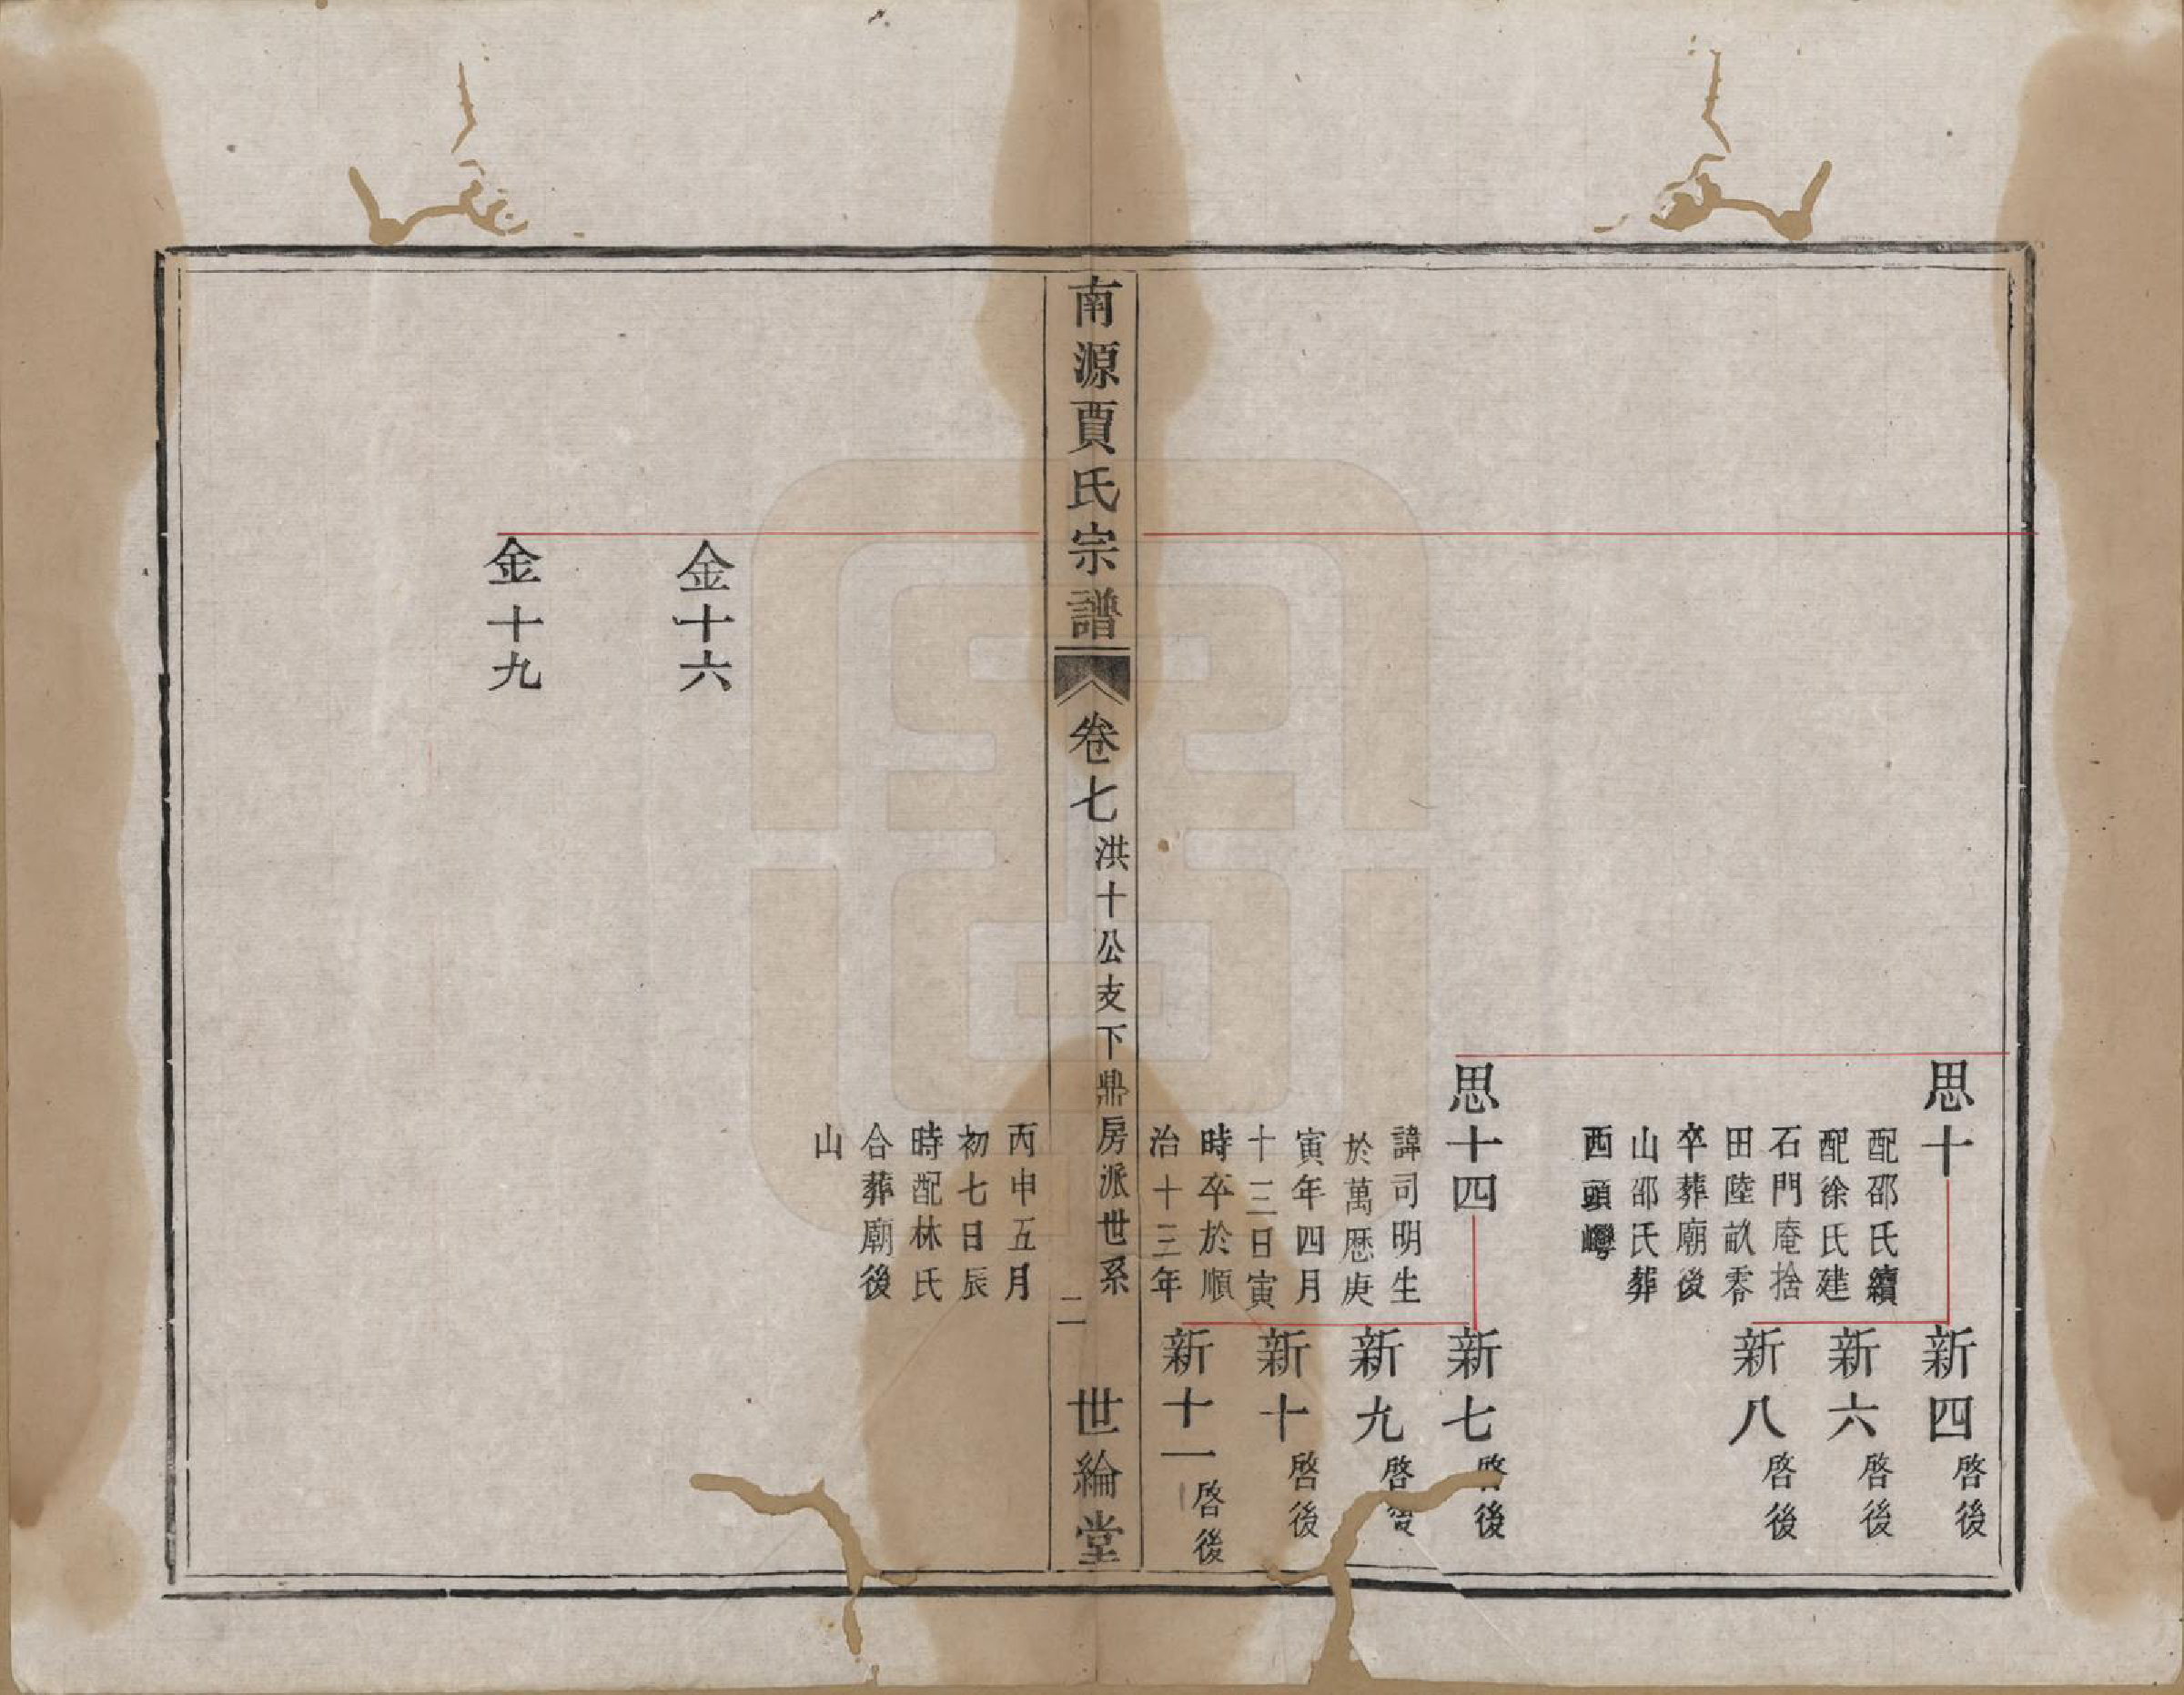 思十
配邵氏續
配徐氏建
石門庵捨
田陸畝零
卒葬廟後
山邵氏葬
西頭灣
新四啓後
新六啓後
新八啓後
思十四
諱司明生
於萬曆庚
寅年四月
十三日寅
時卒於順
治十三年
新七啓後
新九啓後
新十啓後
新十一啓後
南源賈氏宗譜
卷七
洪十公支下鼎房派世系
二
世綸堂
丙申五月
初七日辰
時配林氏
合葬廟後
山
金十六
金十九